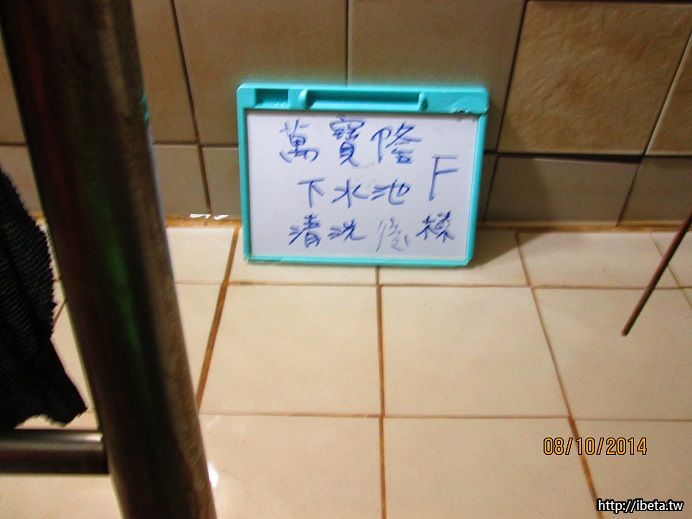 萬寶隆
下水池 F
清洗後 樣
08/10/2014
http://ibeta.tw